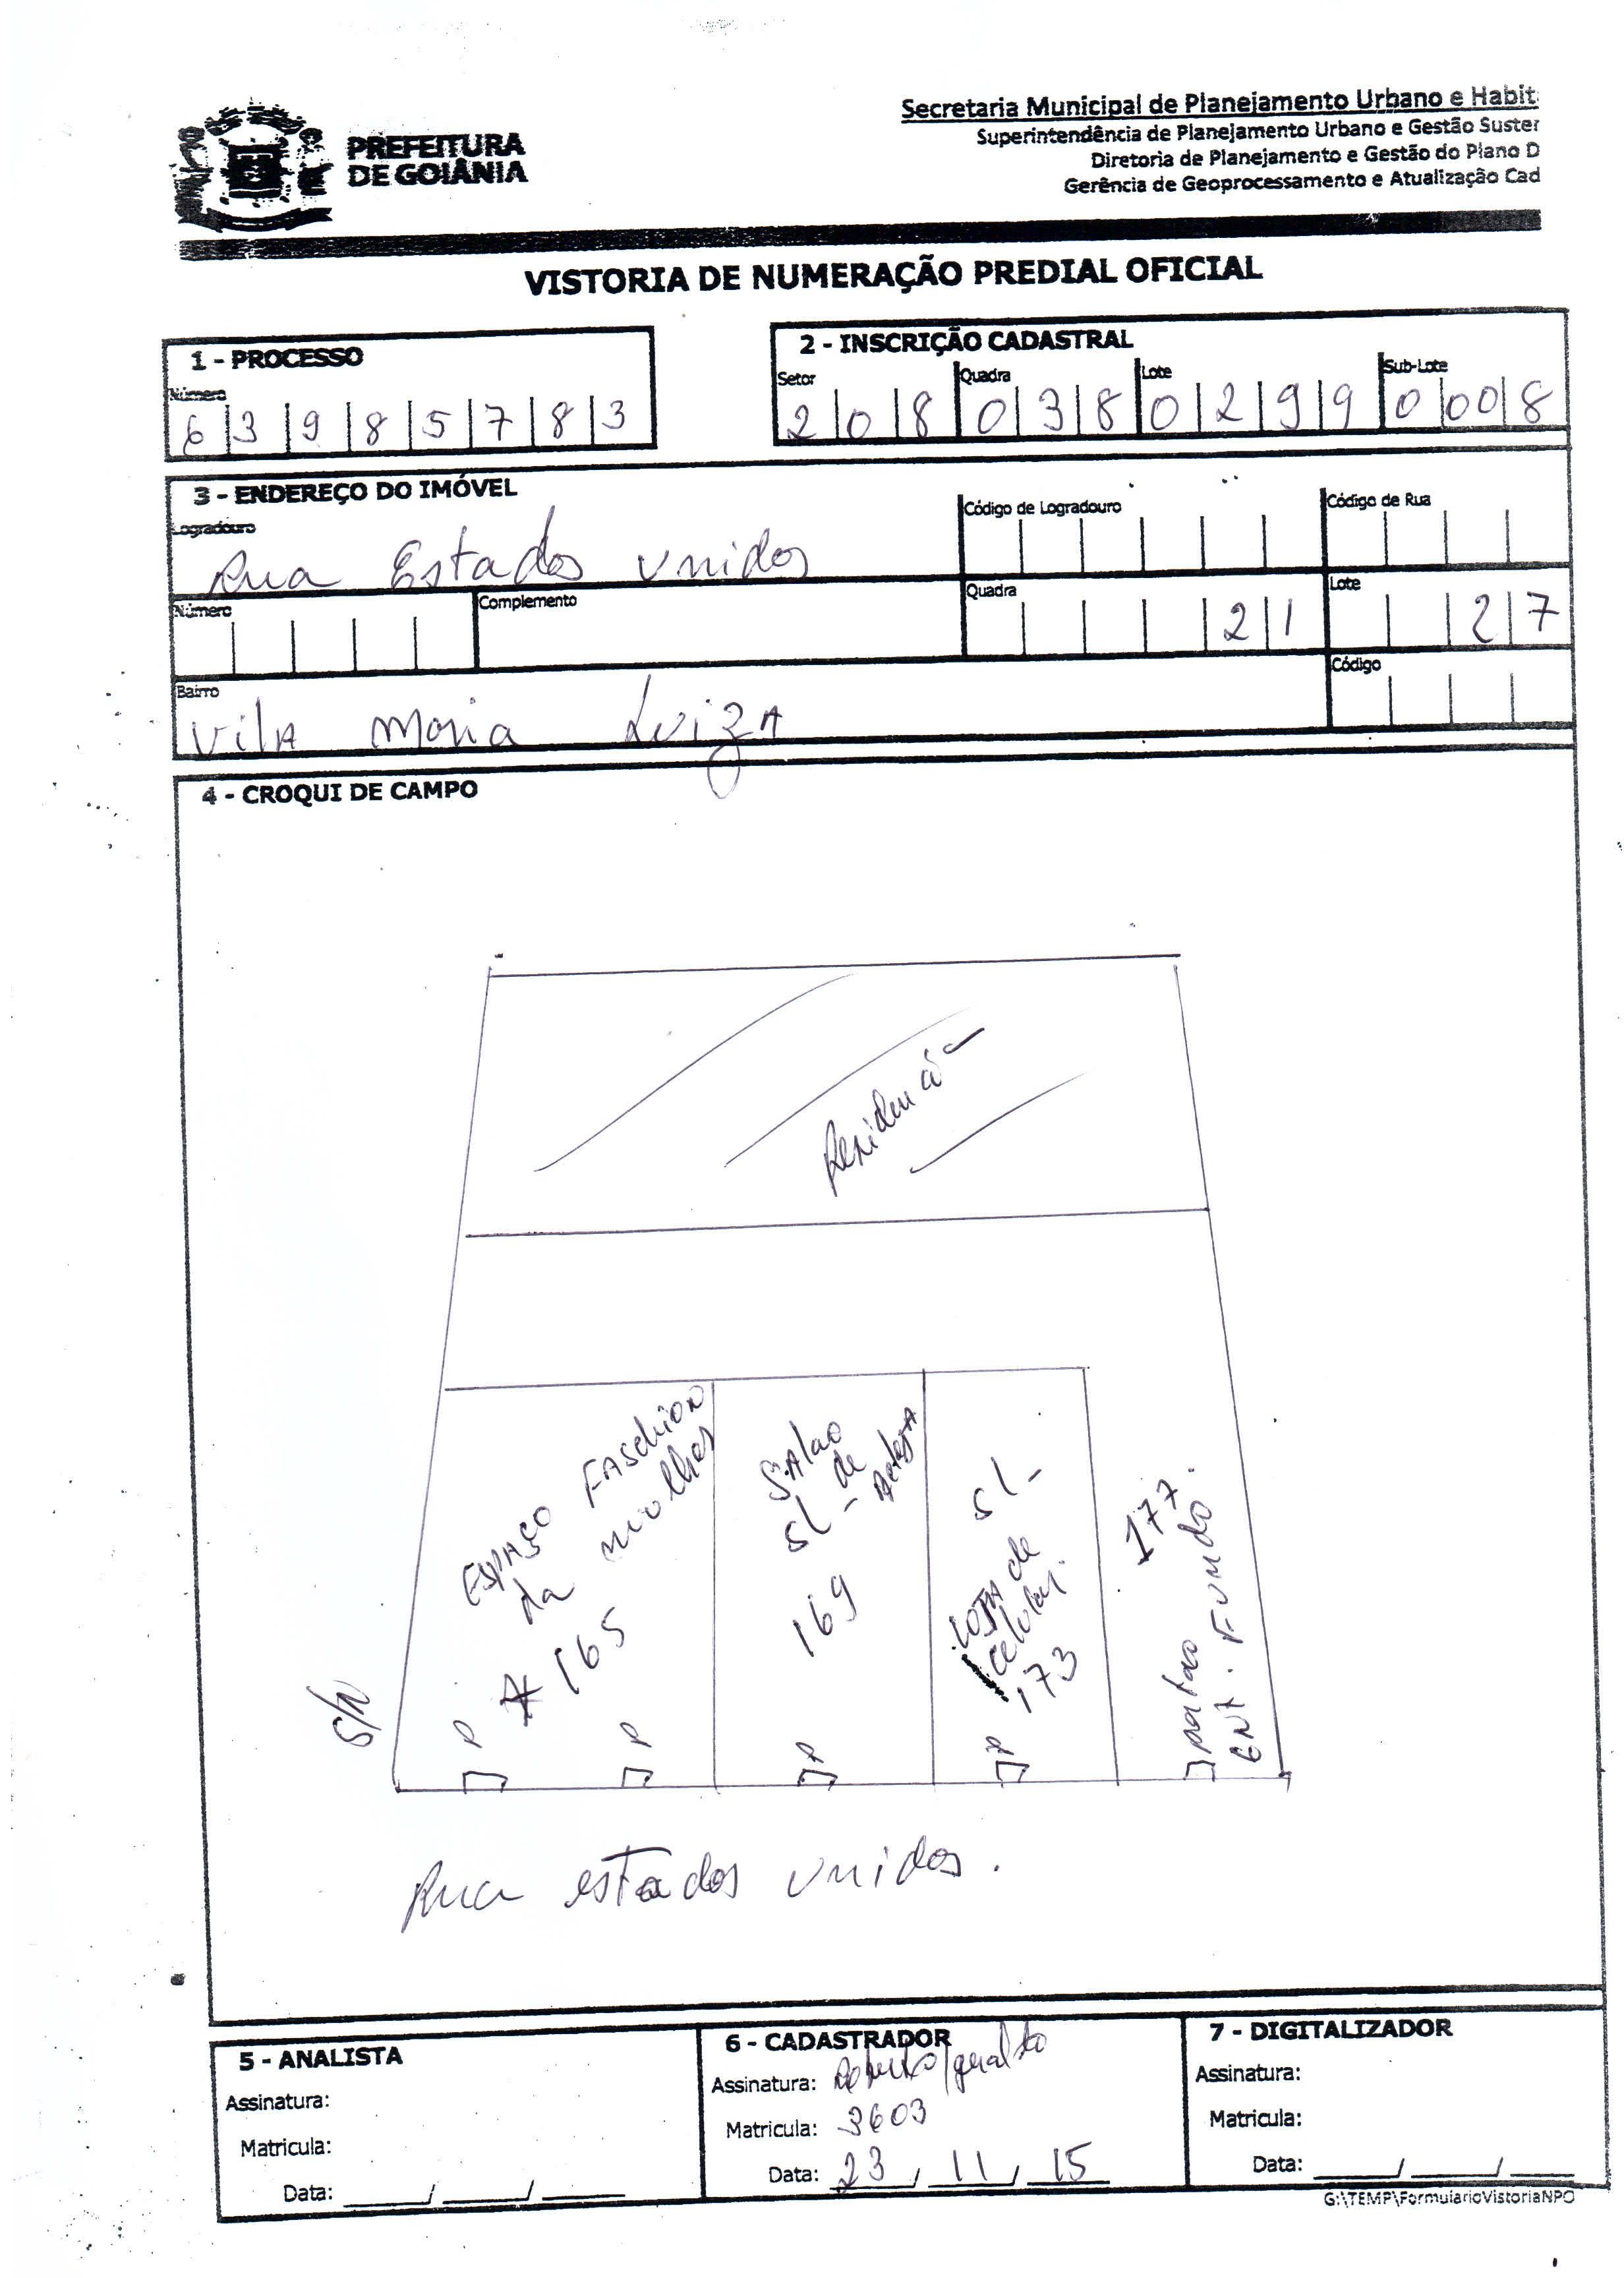 PREFEITURA
DE GOIÂNIA
Secretaria Municipal de Planejamento Urbano e Habit
Superintendência de Planejamento Urbano e Gestão Suster
Diretoria de Planejamento e Gestão do Plano D
Gerência de Geoprocessamento e Atualização Cad
VISTORIA DE NUMERAÇÃO PREDIAL OFICIAL
1 - PROCESSO
Número
6 3 9 8 5 7 8 3
2 - INSCRIÇÃO CADASTRAL
Setor Quadra Lote Sub-Lote
2 0 8 0 3 8 0 2 9 9 0 0 0 8
3 - ENDEREÇO DO IMÓVEL
Logradouro Código de Logradouro Código de Rua
Rua Estados unidos
Número Complemento Quadra Lote
2 1 2 7
Bairro Código
Vila Maria Luiza
4 - CROQUI DE CAMPO
Residencia
ESPAÇO FASCHION
da mulher
165
SAlao
de
sl -
169
sl -
LOJA de
celular.
173
177.
portao
ENT. FUNDO
S/N
P
P
P
P
Rua estados unidos.
5 - ANALISTA
Assinatura:
Matricula:
Data: ____/____/____
6 - CADASTRADOR
Assinatura: Roberto/geraldo
Matricula: 3603
Data: 23 / 11 / 15
7 - DIGITALIZADOR
Assinatura:
Matricula:
Data: ____/____/____
G:\TEMP\FormularioVistoriaNPO